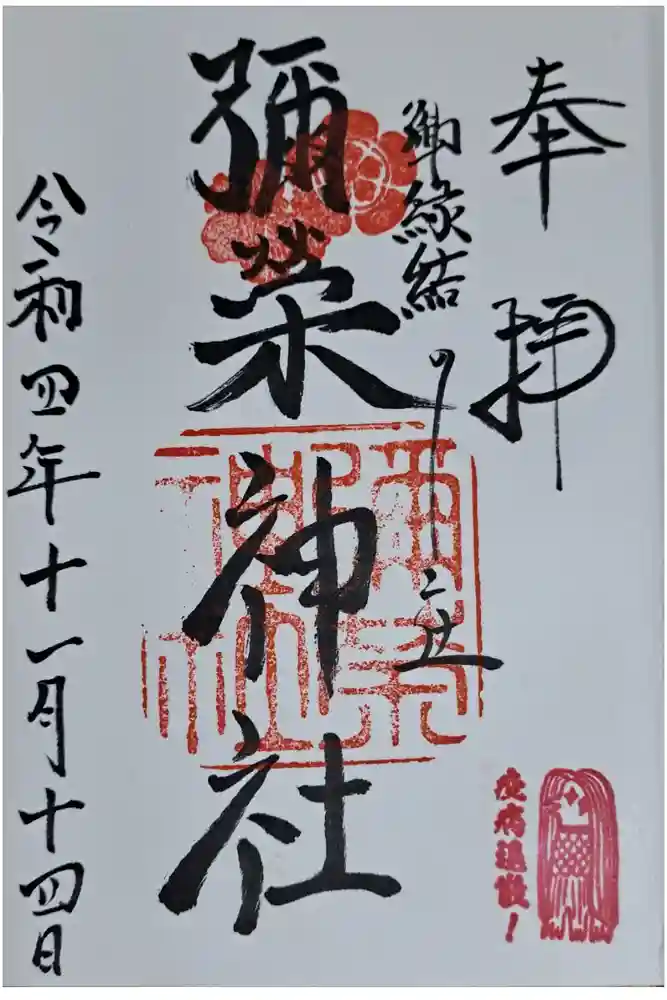 奉拝
御縁結の
彌榮神社
彌榮神社
疫病退散！
令和四年十一月十四日